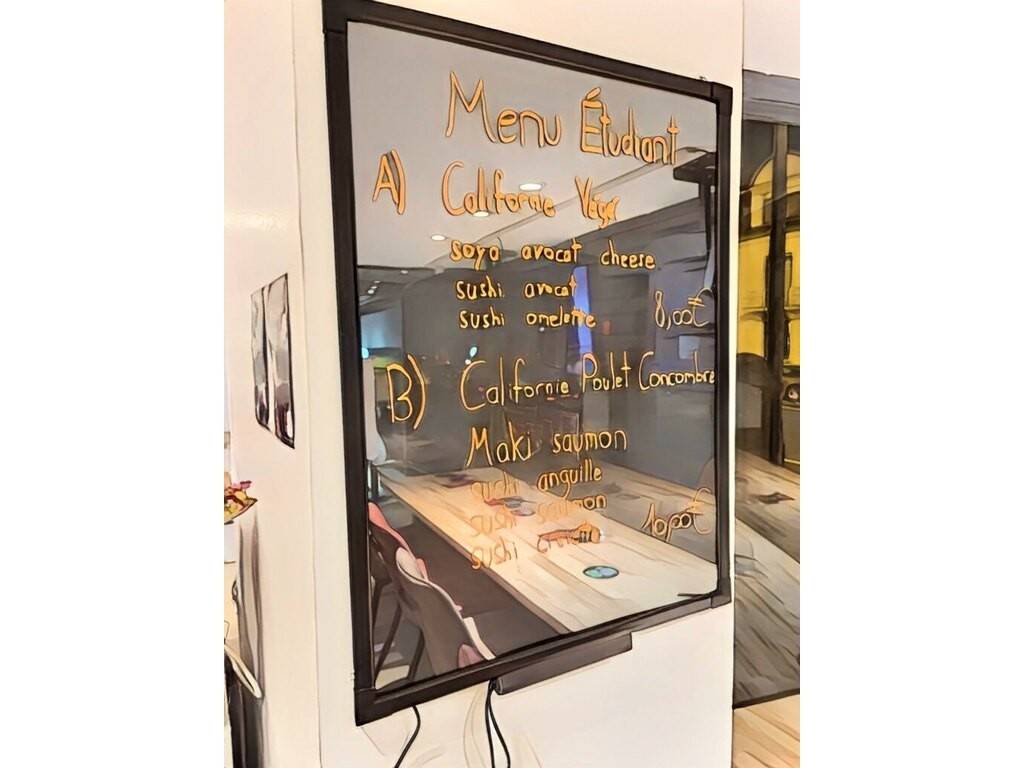 Menu Étudiant
A) Californie Végé
soya avocat cheese
sushi avocat
sushi omelette 8,00€
B) Californie Poulet Concombre
Maki saumon
sushi anguille
sushi saumon
sushi 10,00€